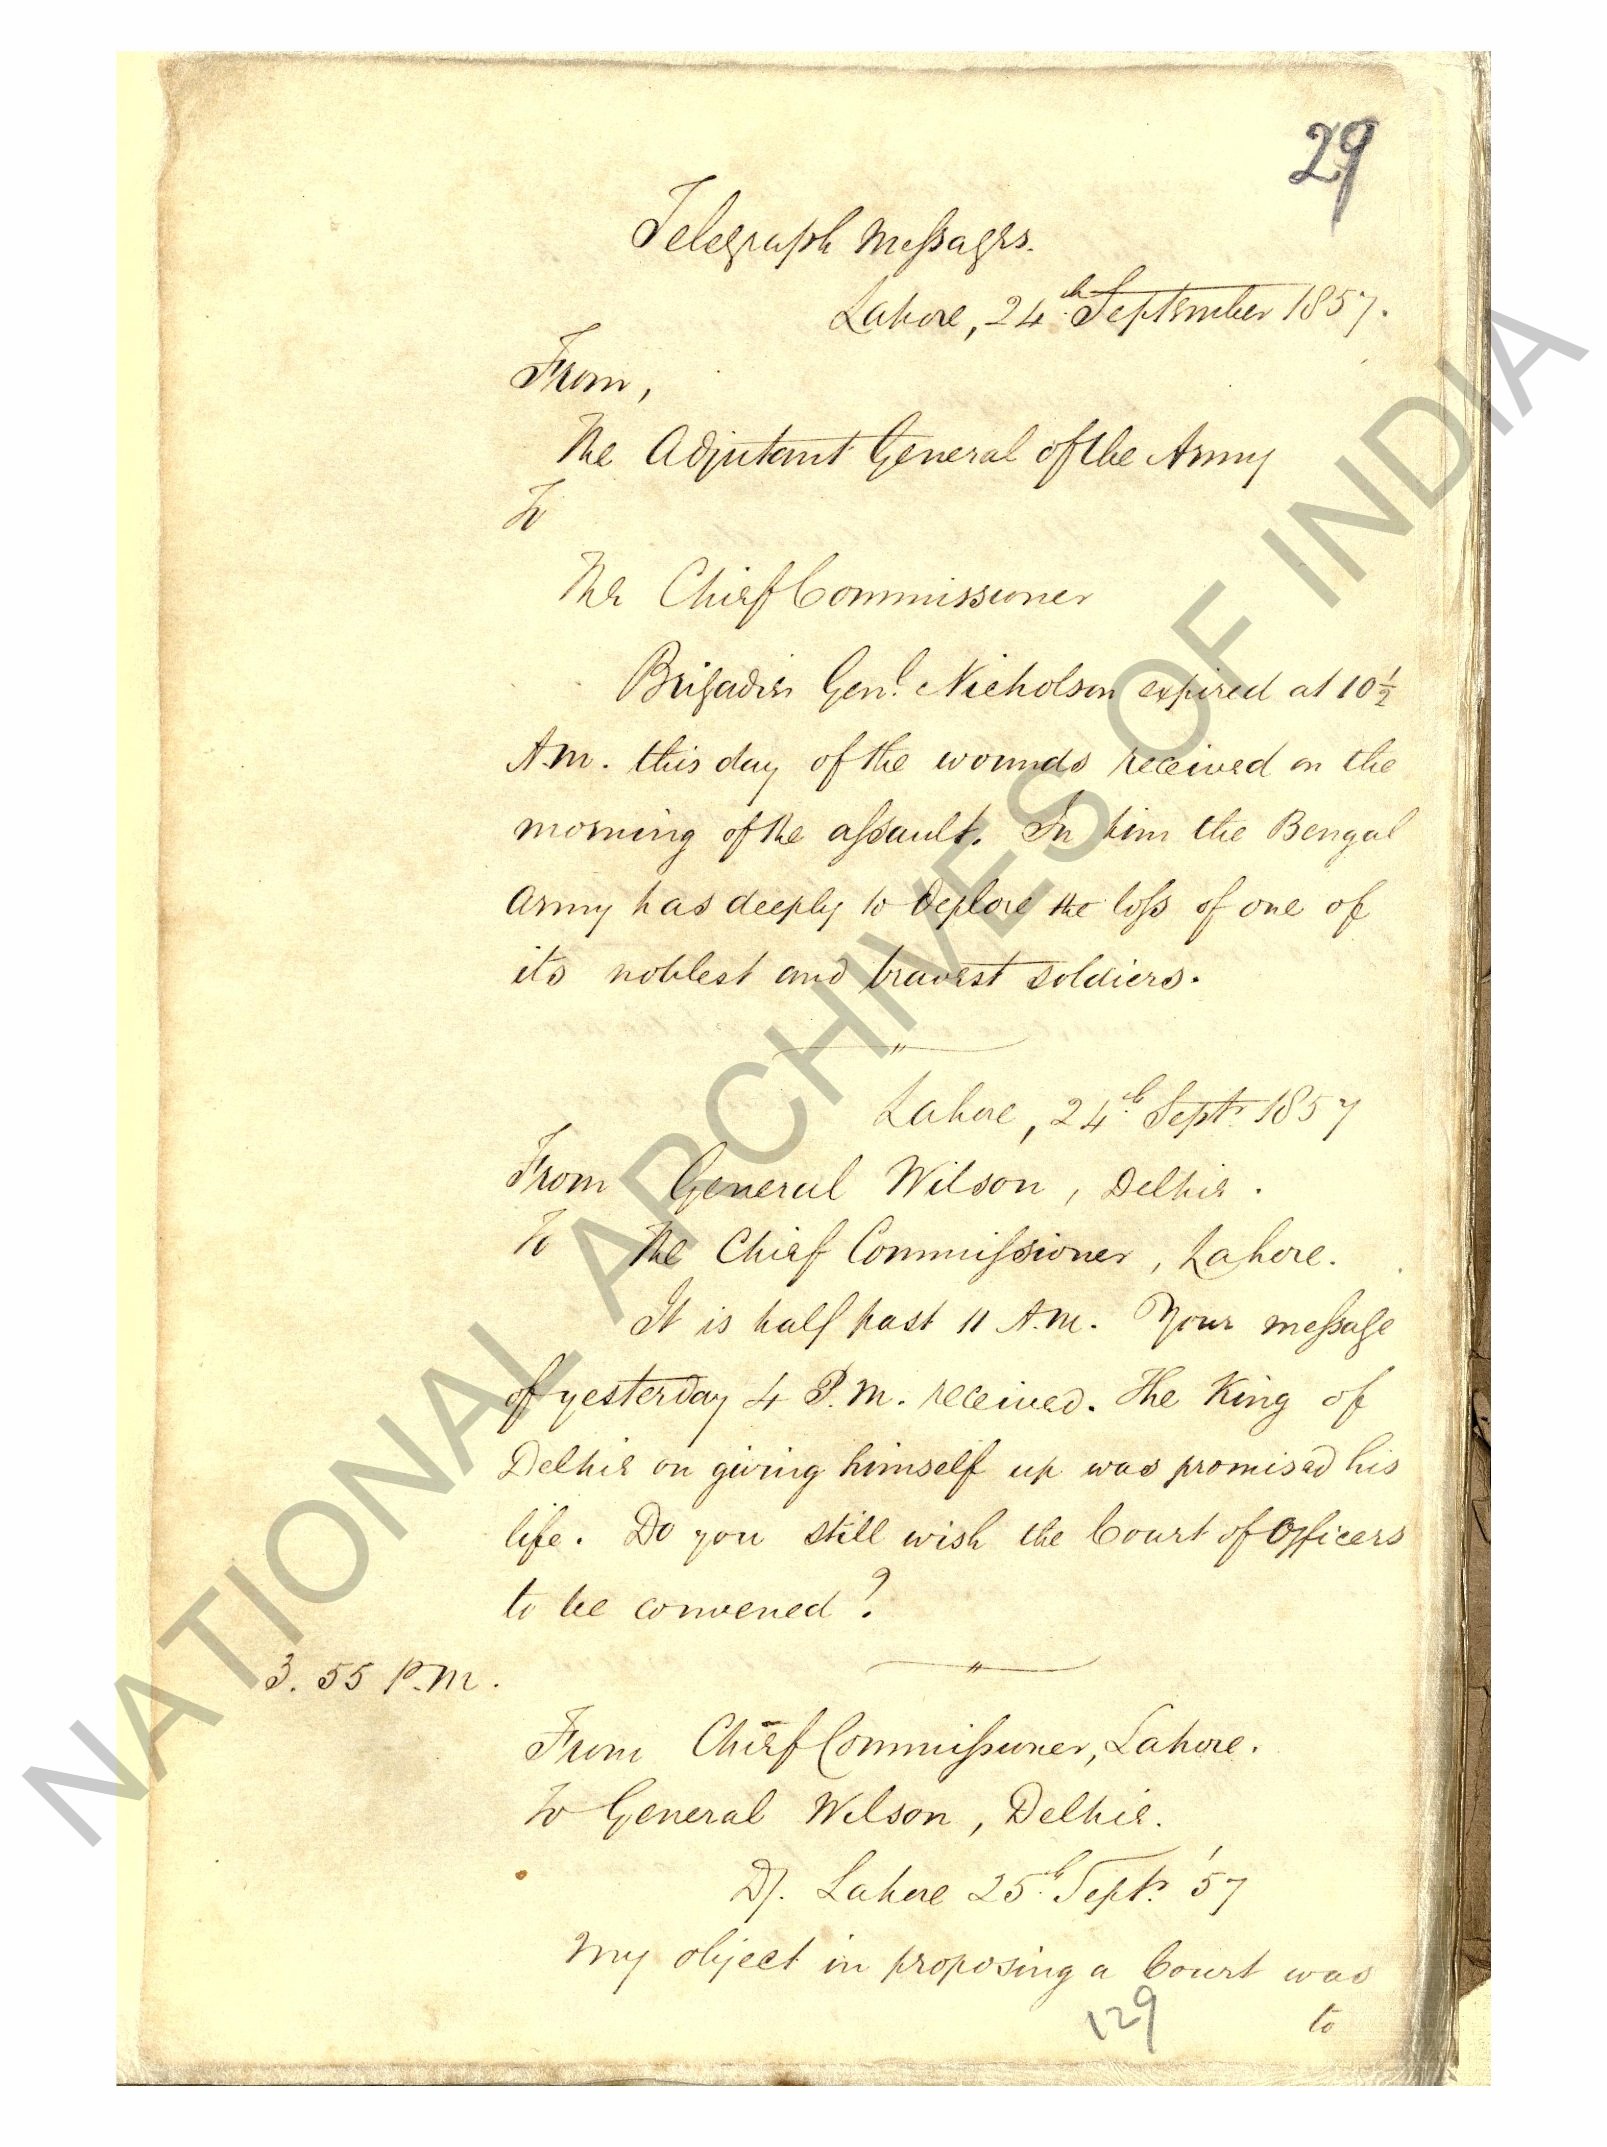 29
Telegraph Messages.
Lahore, 24th September 1857.
From,
The Adjutant General of the Army
To
The Chief Commissioner
Brigadier Genl. Nicholson expired at 10½
A.M. this day of the wounds received on the
morning of the assault. In him the Bengal
Army has deeply to deplore the loss of one of
its noblest and bravest soldiers.
Lahore, 24th Septr. 1857
From General Wilson, Delhie.
To The Chief Commissioner, Lahore.
It is half past 11 A.M. Your message
of yesterday 4 P.M. received. The King of
Delhie on giving himself up was promised his
life. Do you still wish the Court of Officers
to be convened?
3. 55 P.M.
From Chief Commissioner, Lahore.
To General Wilson, Delhie.
D/. Lahore 25th Septr. '57
My object in proposing a Court was
to
129
NATIONAL ARCHIVES OF INDIA